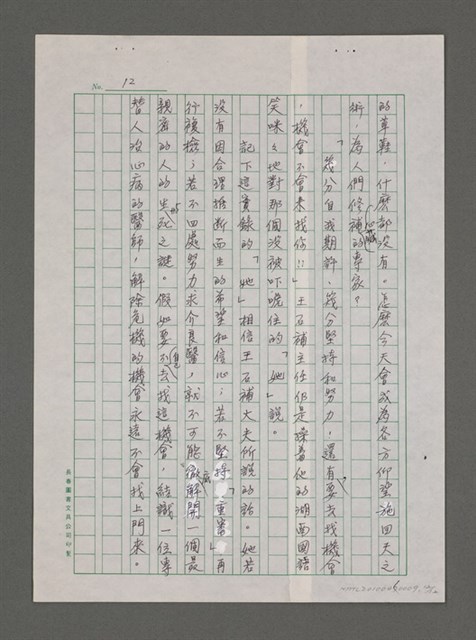 No. 12
的草鞋,什麼都沒有。怎麼今天會成為各方仰望施回天之
術,為人們修補心臟的專家?
「幾分自我期許、幾分堅持和努力,還有要去找機會
,機會不會來找你!!」王石補主任仍是操著他的湖南國語
笑咪々地對那個沒被吓唬住的「她」說。
記下這實錄的「她」相信王石補大夫所說的話。她若
沒有因合理推斷而生的希望和信心;若不堅持「重審」再
行複檢;若不四處努力求介良醫,就不可能徹底解開一個最
親密的人的生死之謎。假如要不自去找這機會,結識一位專
替人改心病的醫師,解除危機的機會永遠不會找上門來。
長春圖書文具公司印製